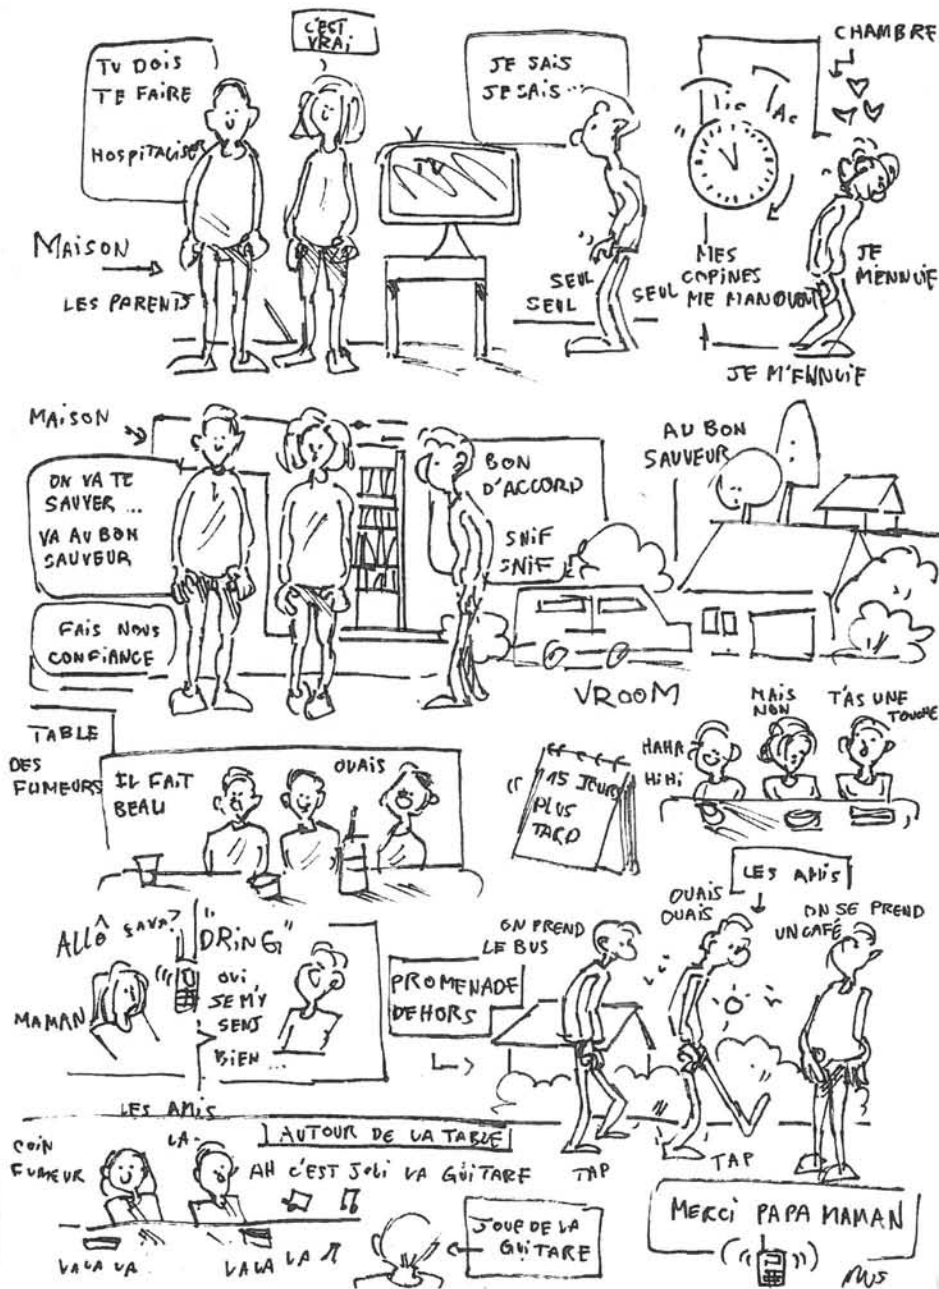 C'EST
VRAI
TU DOIS
TE FAIRE
HOSPITALISER
JE SAIS
JE SAIS...
CHAMBRE
TIC
TAC
TV
MAISON
LES PARENTS
SEUL
SEUL
SEUL
MES
COPINES
ME MANQUENT
JE
M'ENNUIE
JE M'ENNUIE
MAISON
ON VA TE
SAUVER ...
VA AU BON
SAUVEUR
FAIS NOUS
CONFIANCE
BON
D'ACCORD
SNIF
SNIF
AU BON
SAUVEUR
VROOM
TABLE
DES
FUMEURS
IL FAIT
BEAU
OUAIS
15 JOURS
PLUS
TARD
HAHA
HiHi
MAIS
NON
T'AS UNE
TOUCHE
ALLÔ ÇAVA?
"DRING"
MAMAN
OUI
JE M'Y
SENS
BIEN ...
PROMENADE
DEHORS
ON PREND
LE BUS
OUAIS
OUAIS
LES AMIS
ON SE PREND
UN CAFÉ
TAP
TAP
LES AMIS
AUTOUR DE LA TABLE
COIN
FUMEUR
LA
AH C'EST JOLI LA GUITARE
LA LA LA
LA LA LA
JOUE DE LA
GUITARE
MERCI PAPA MAMAN